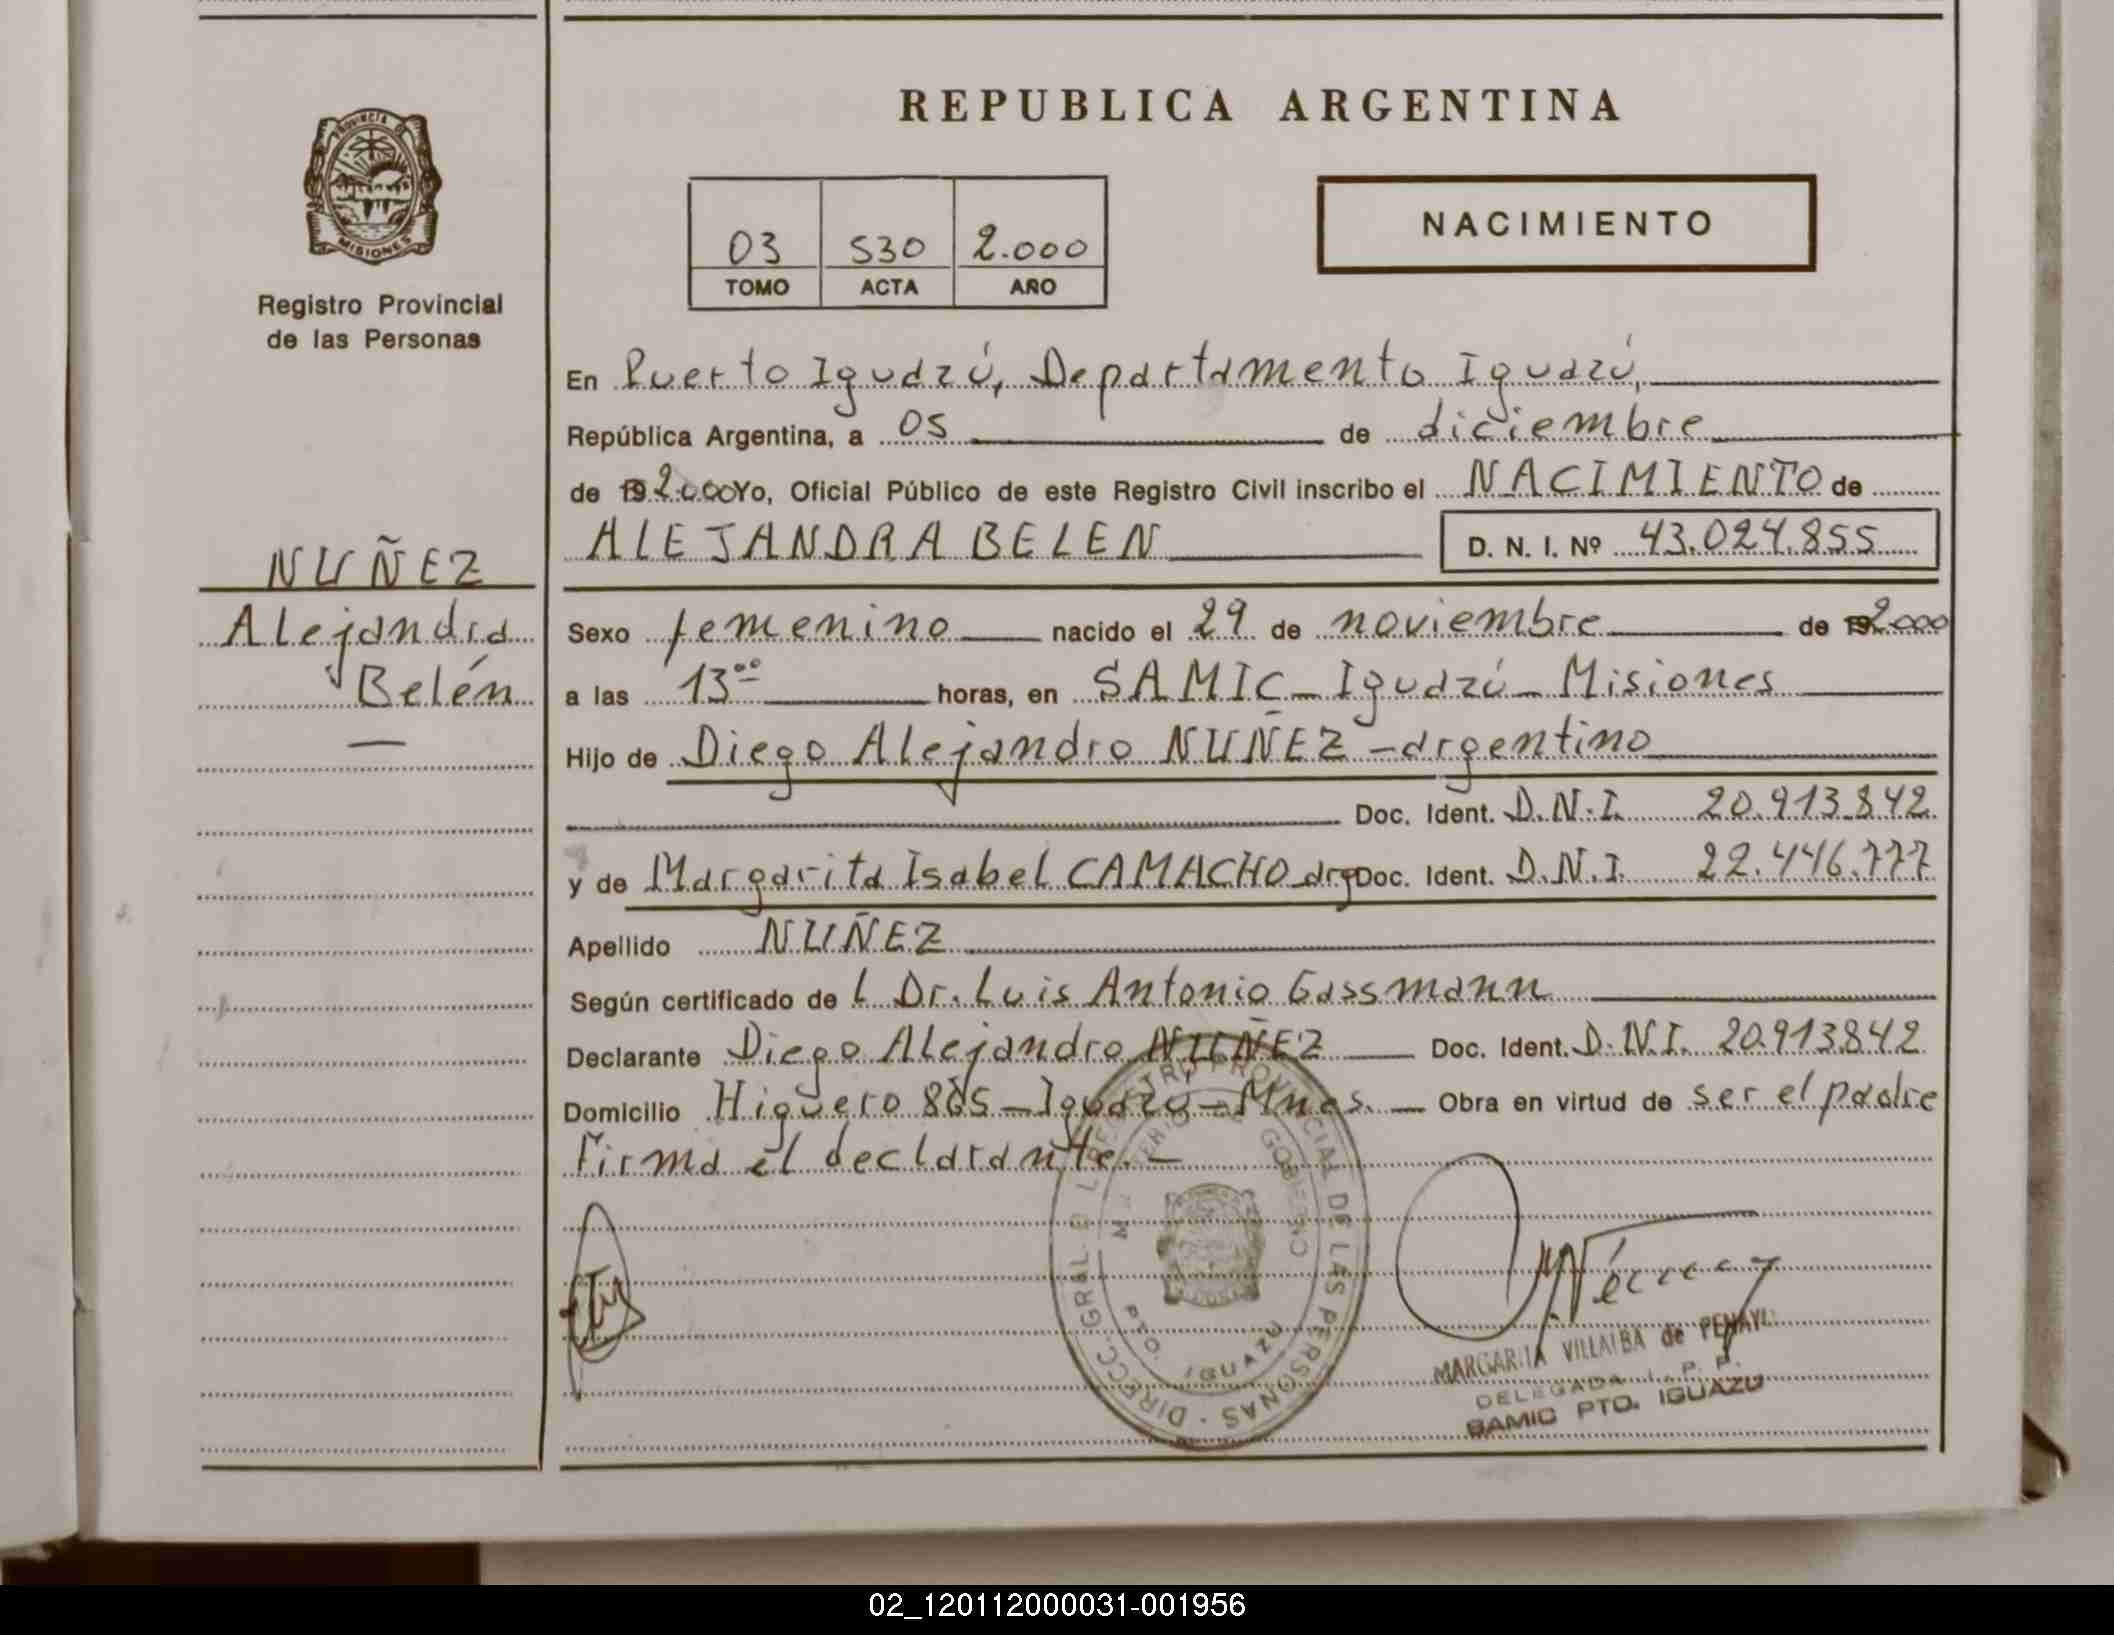 REPUBLICA ARGENTINA
PROVINCIA DE
MISIONES
Registro Provincial
de las Personas
03 530 2.000
TOMO ACTA AÑO
NACIMIENTO
En Puerto Iguazú, Departamento Iguazú,
República Argentina, a 05 de diciembre
de 19 2.000 Yo, Oficial Público de este Registro Civil inscribo el NACIMIENTO de
ALEJANDRA BELEN D. N. I. Nº 43.024.855
NUÑEZ
Alejandra
Belén
Sexo femenino nacido el 29 de noviembre de 19 2000
a las 13°° horas, en SAMIC - Iguazú - Misiones
Hijo de Diego Alejandro NUÑEZ - argentino
Doc. Ident. D.N.I. 20.913.842
y de Margarita Isabel CAMACHO - arg Doc. Ident. D.N.I. 22.446.777
Apellido NUÑEZ
Según certificado de l Dr. Luis Antonio Gassmann
Declarante Diego Alejandro NUÑEZ Doc. Ident. D.N.I. 20.913.842
Domicilio Higuero 865 - Iguazú - Mnes. Obra en virtud de ser el padre
Firma el declarante. -
DIRECC. GRAL. D L REGISTRO PROVINCIAL DE LAS PERSONAS
GOBIERNO
PTO. IGUAZU
MARGARITA VILLALBA de
DELEGADA
SAMIC PTO. IGUAZU
02_120112000031-001956